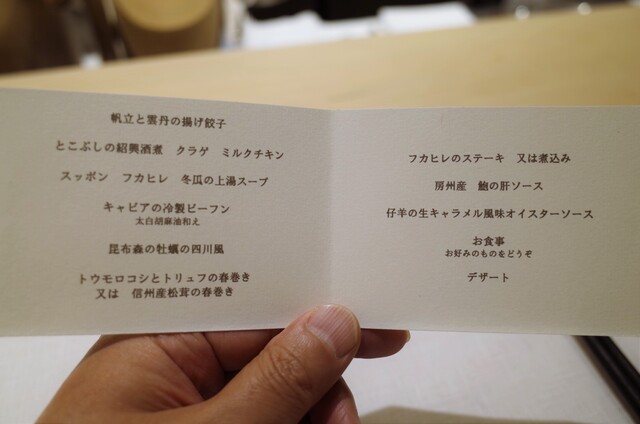 帆立と雲丹の揚げ餃子
とこぶしの紹興酒煮　クラゲ　ミルクチキン
スッポン　フカヒレ　冬瓜の上湯スープ
キャビアの冷製ビーフン
太白胡麻油和え
昆布森の牡蠣の四川風
トウモロコシとトリュフの春巻き
又は　信州産松茸の春巻き
フカヒレのステーキ　又は煮込み
房州産　鮑の肝ソース
仔羊の生キャラメル風味オイスターソース
お食事
お好みのものをどうぞ
デザート